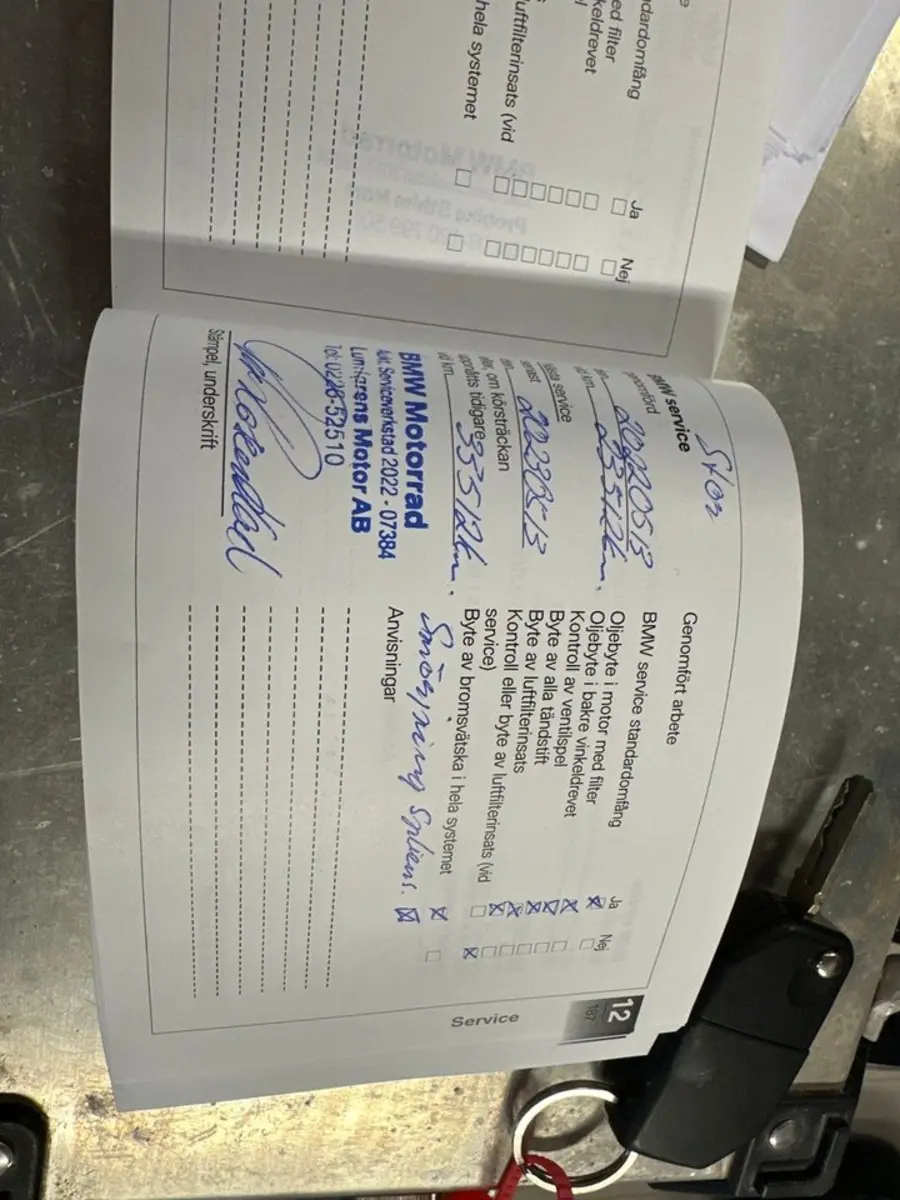 dardomfång
ed filter
keldrevet
uftfilterinsats (vid
hela systemet
Ja Nej
BMW service
genomförd
20220513
vid km 23512km.
Nästa service
senast
20230513
eller, om körsträckan
uppnåtts tidigare,
vid km 33512km.
BMW Motorrad
Aukt. Serviceverkstad 2022 - 07384
Motor AB
Tel: 0226-52510
Stämpel, underskrift
Genomfört arbete
Ja Nej
BMW service standardomfång
Oljebyte i motor med filter
Oljebyte i bakre vinkeldrevet
Kontroll av ventilspel
Byte av alla tändstift
Byte av luftfilterinsats
Kontroll eller byte av luftfilterinsats (vid
service)
Byte av bromsvätska i hela systemet
Smörjning Spliens.
Anvisningar
12
187
Service